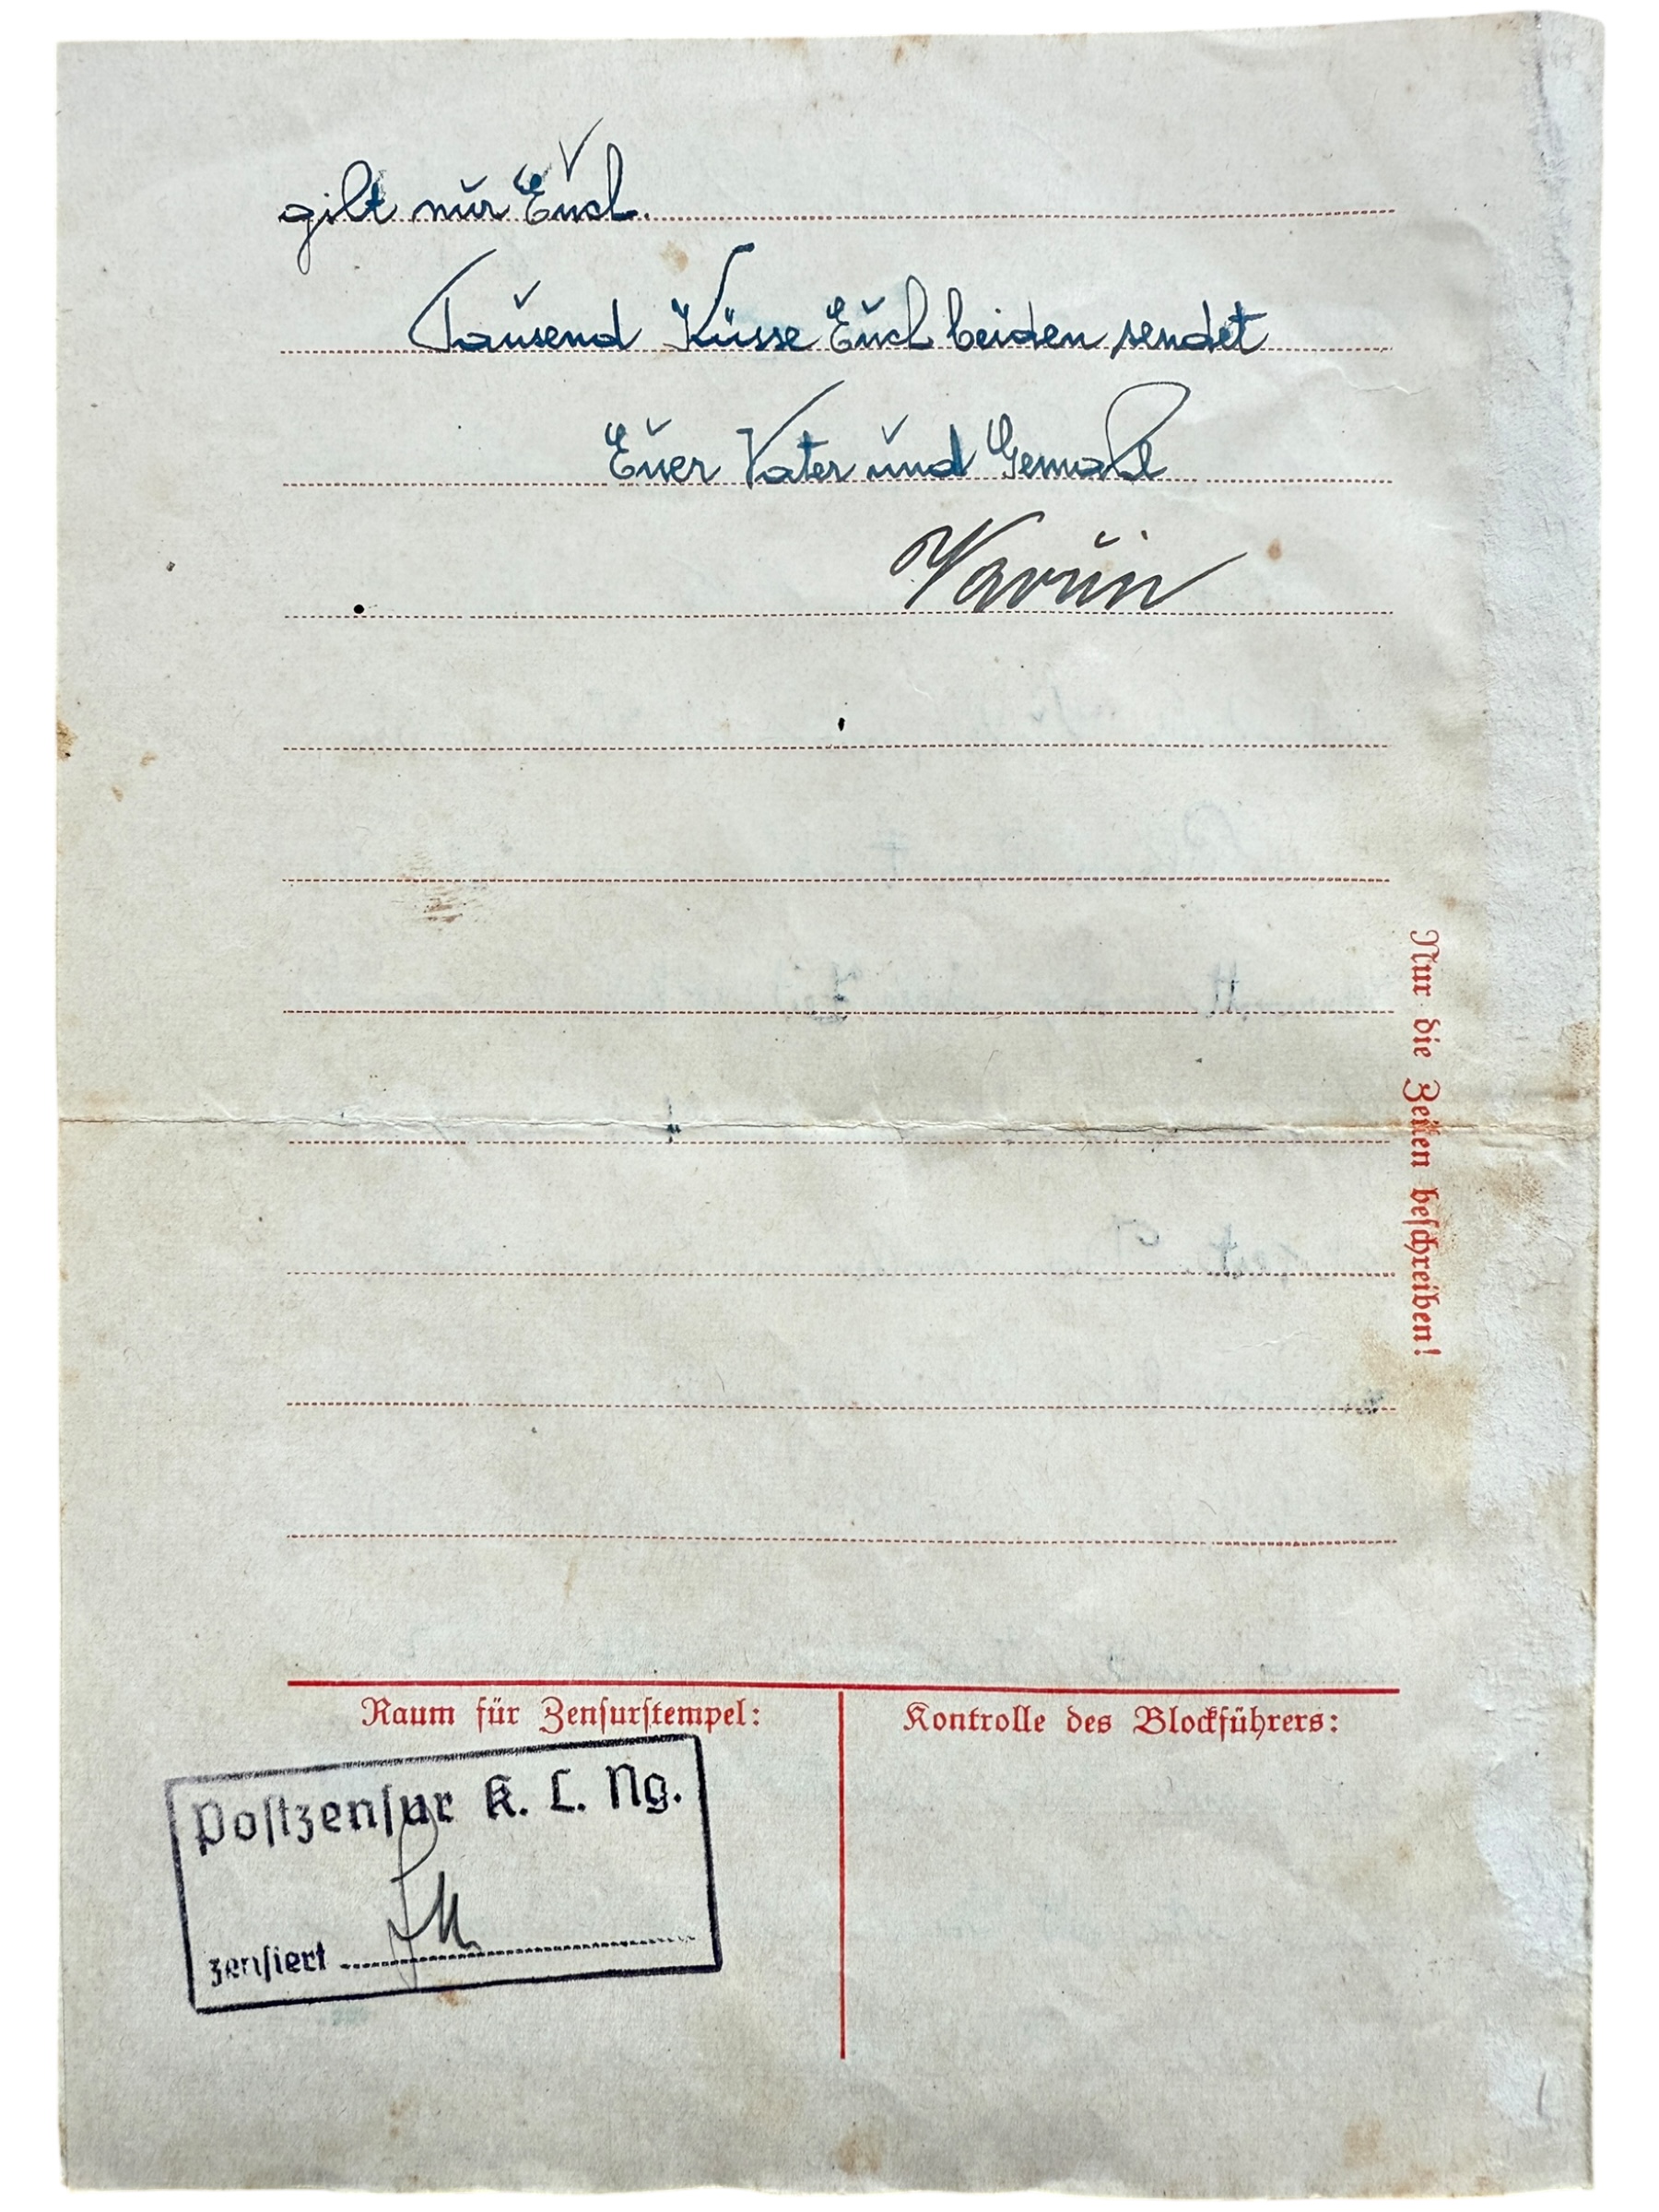 gilt nur Euch.
Tausend Küsse Euch beiden sendet
Euer Vater und Gemahl
Nur die Zeilen beschreiben!
Raum für Zensurstempel:
Kontrolle des Blockführers:
Postzensur K. L. Ng.
zensiert